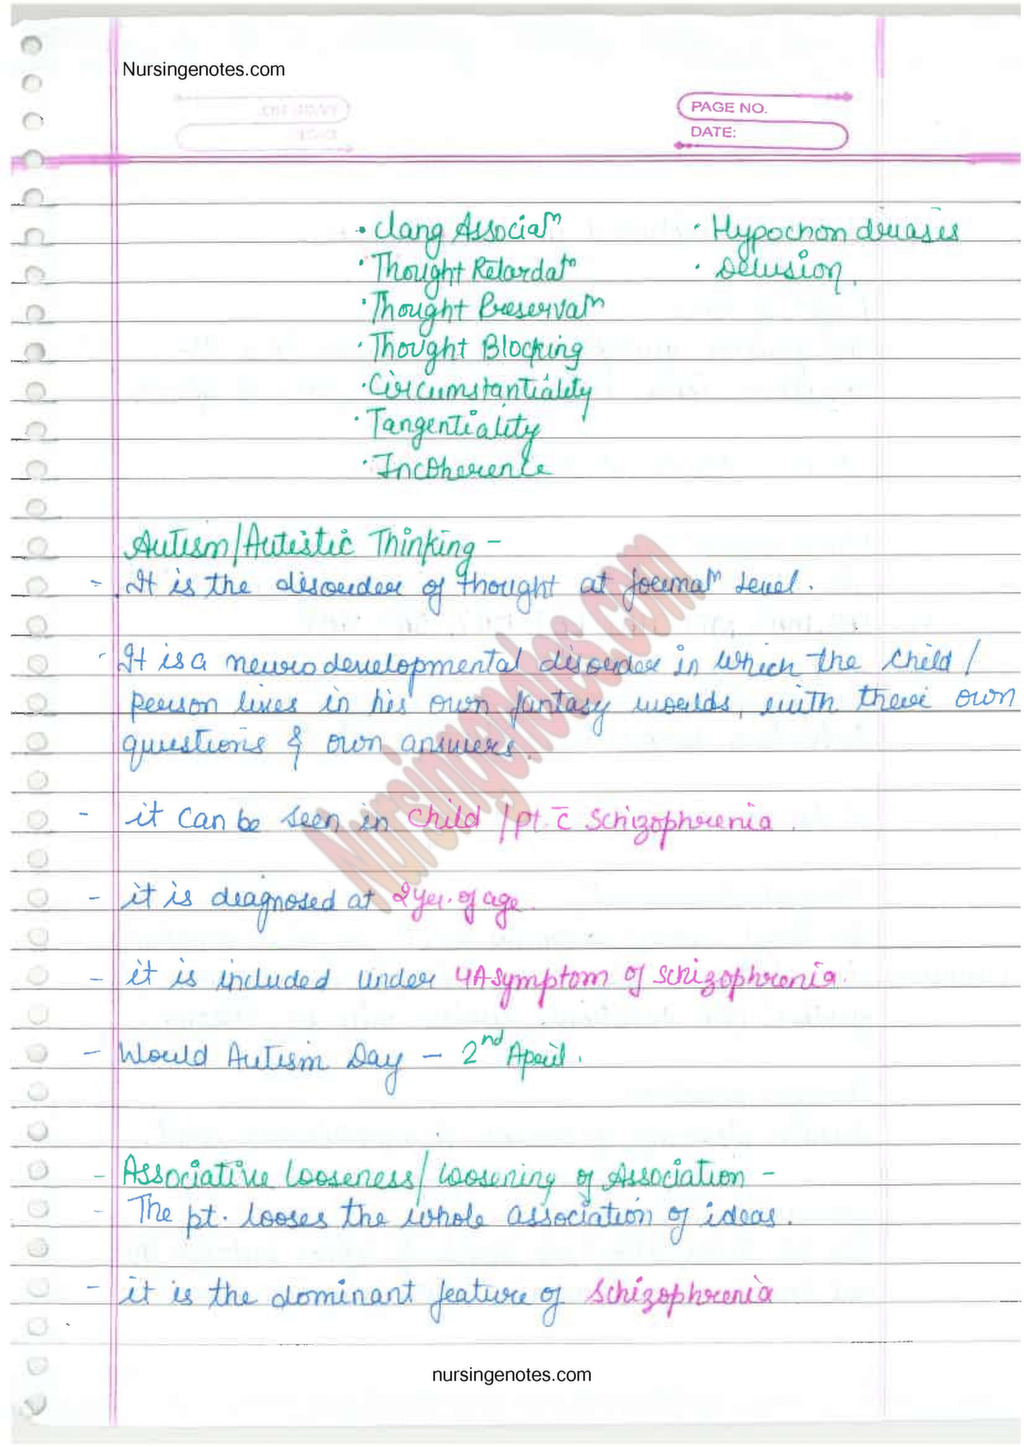 Nursingenotes.com
PAGE NO.
DATE:
• Clang Associatn • Hypochondriasis
• Thought Retardatn • Delusion.
• Thought Preservatn
• Thought Blocking
• Circumstantiality
• Tangentiality
• Incoherence
Autism/Autistic Thinking -
- It is the disorder of thought at formatn level.
- It is a neurodevelopmental disorder in which the child /
person lives in his own fantasy worlds, with their own
questions & own answers.
- it can be seen in child / pt. c̄ schizophrenia.
- it is diagnosed at 2 yer. of age.
- it is included under 4A symptom of schizophrenia.
- World Autism Day - 2nd April.
- Associative Looseness/ Loosening of Association -
- The pt. looses the whole association of ideas.
- it is the dominant feature of Schizophrenia
Nursingenotes.com
nursingenotes.com